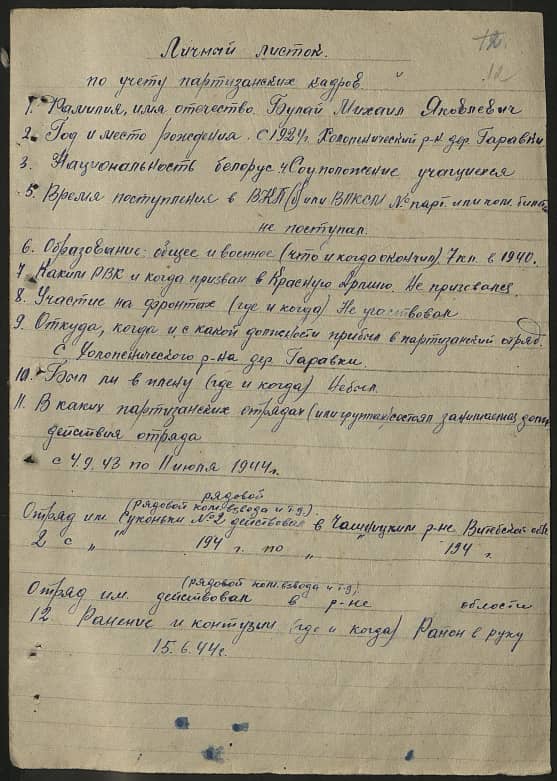 12.
12
Личный листок.
по учету партизанских кадров.
1. Фамилия, имя отчество. Булай Михаил Яковлевич
2. Год и место рождения. с 1924г. Холопенический р-н дер. Гаравки
3. Национальность белорус. 4 Соцположение учащиеся
5. Время поступления в ВКП(б) или ВЛКСМ № парт. или ком. билета
не поступал.
6. Образование: общее и военное (что и когда окончил). 7 кл. в 1940.
7. Каким РВК и когда призван в Красную Армию. Не призовался.
8. Участие на фронтах (где и когда) Не участвовал
9. Откуда, когда и с какой должности прибыл в партизанский отряд.
С Холопенического р-на дер. Гаравки.
10. Был ли в плену (где и когда) Небыл.
11. В каких партизанских отрядах (или группах) состоял занимаемая долж.
действия отряда
с 4.9.43 по 11 июля 1944г.
рядовой
(рядовой ком. взвода и т.д.).
Отряд им Суконьки №2 действовал в Чашницким р-не Витебской обл.
2 с " " 194 г. по " " 194 г.
(рядовой ком. взвода и т.д).
Отряд им. действовал в р-не области
12. Ранение и контузии (где и когда) Район в руку
15.6.44г.